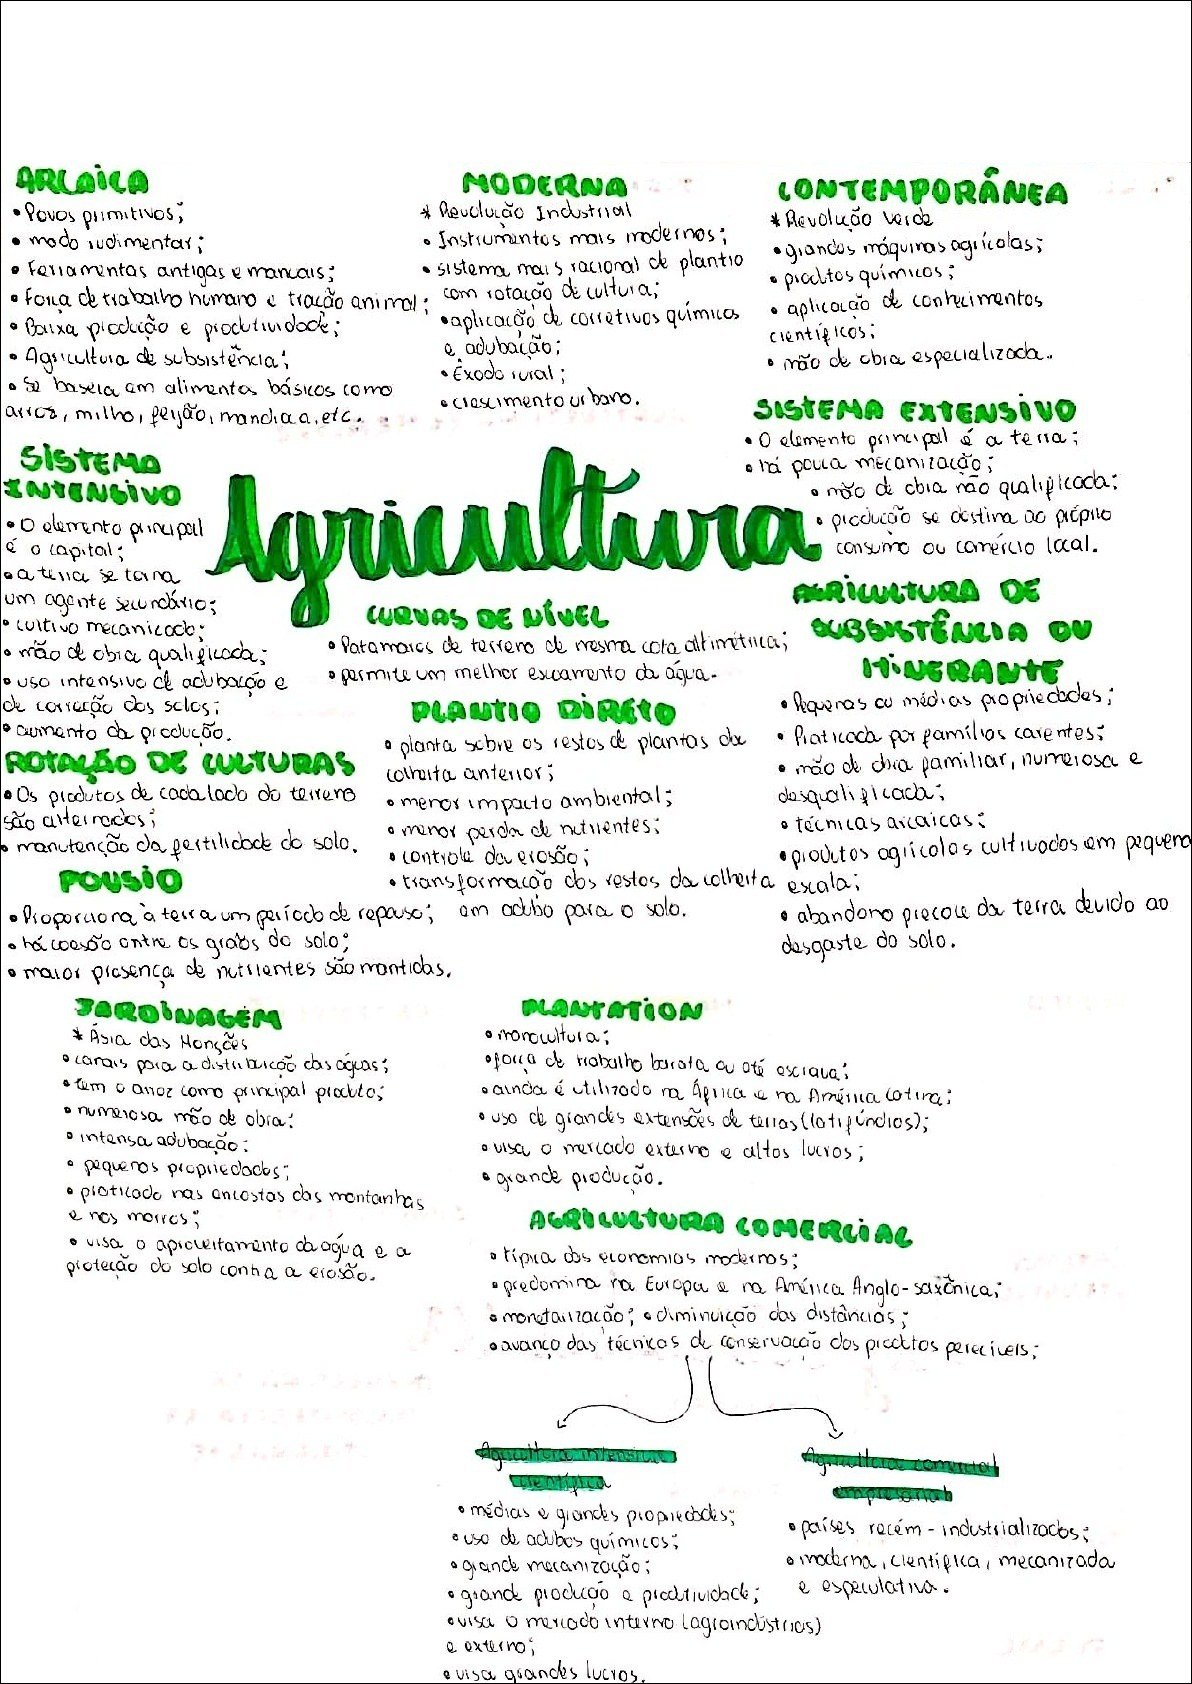 ARCAICA
• Povos primitivos;
• modo rudimentar;
• Ferramentas antigas e manuais;
• Força de trabalho humano e tração animal;
• Baixa produção e produtividade;
• Agricultura de subsistência;
• Se baseia em alimentos básicos como
arroz, milho, feijão, mandioca, etc.
MODERNA
* Revolução Industrial
• Instrumentos mais modernos;
• sistema mais racional de plantio
com rotação de cultura;
• aplicação de corretivos químicos
e adubação;
• Êxodo rural;
• crescimento urbano.
CONTEMPORÂNEA
* Revolução verde
• grandes máquinas agrícolas;
• produtos químicos;
• aplicação de conhecimentos
científicos;
• mão de obra especializada.
SISTEMA EXTENSIVO
• O elemento principal é a terra;
• há pouca mecanização;
• mão de obra não qualificada;
• produção se destina ao próprio
consumo ou comércio local.
SISTEMA
INTENSIVO
• O elemento principal
é o capital;
• a terra se torna
um agente secundário;
• cultivo mecanizado;
• mão de obra qualificada;
• uso intensivo de adubação e
de correção dos solos;
• aumento da produção.
Agricultura
CURVAS DE NÍVEL
• Patamares de terreno de mesma cota altimétrica;
• permite um melhor escoamento da água.
AGRICULTURA DE
SUBSISTÊNCIA OU
ITINERANTE
• Pequenas ou médias propriedades;
• Praticada por famílias carentes;
• mão de obra familiar, numerosa e
desqualificada;
• técnicas arcaicas;
• produtos agrícolas cultivados em pequena
escala;
• abandono precoce da terra devido ao
desgaste do solo.
PLANTIO DIRETO
• planta sobre os restos de plantas da
colheita anterior;
• menor impacto ambiental;
• menor perda de nutrientes;
• controle da erosão;
• transformação dos restos da colheita
em adubo para o solo.
ROTAÇÃO DE CULTURAS
• Os produtos de cada lado do terreno
são alternados;
• manutenção da fertilidade do solo.
POUSIO
• Proporciona à terra um período de repouso;
• há coesão entre os grãos do solo;
• maior presença de nutrientes são mantidas.
JARDINAGEM
* Ásia das Monções
• canais para a distribuição das águas;
• tem o arroz como principal produto;
• numerosa mão de obra;
• intensa adubação;
• pequenas propriedades;
• praticado nas encostas das montanhas
e nos morros;
• visa o aproveitamento da água e a
proteção do solo contra a erosão.
PLANTATION
• monocultura;
• força de trabalho barata ou até escrava;
• ainda é utilizado na África e na América Latina;
• uso de grandes extensões de terras (latifúndios);
• visa o mercado externo e altos lucros;
• grande produção.
AGRICULTURA COMERCIAL
• típica das economias modernas;
• predomina na Europa e na América Anglo-saxônica;
• monetarização; • diminuição das distâncias;
• avanço das técnicas de conservação dos produtos perecíveis;
Agricultura intensiva
científica
• médias e grandes propriedades;
• uso de adubos químicos;
• grande mecanização;
• grande produção e produtividade;
• visa o mercado interno (agroindústrias)
e externo;
• visa grandes lucros.
Agricultura comercial
empresarial
• países recém-industrializados;
• moderna, científica, mecanizada
e especulativa.